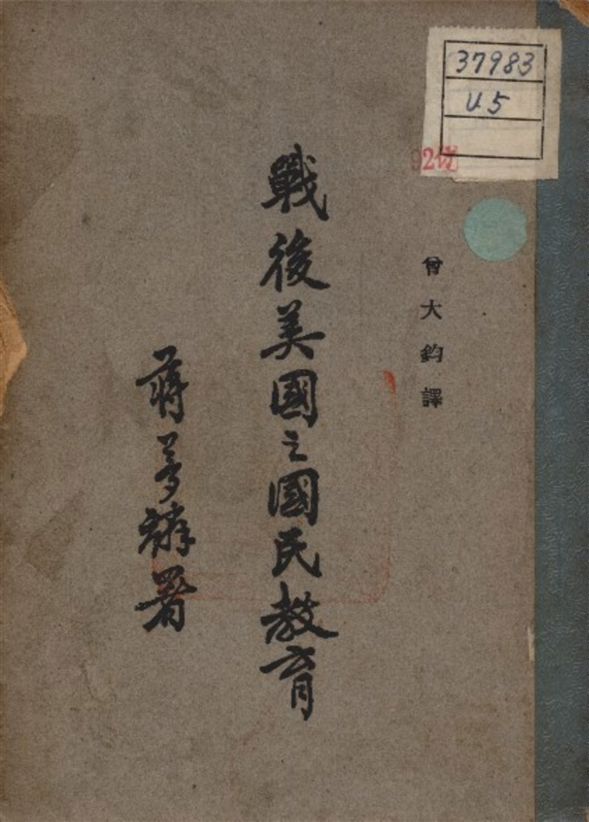 37983
U5
曾大鈞譯
戰後美國之國民教育
蔣夢麟署